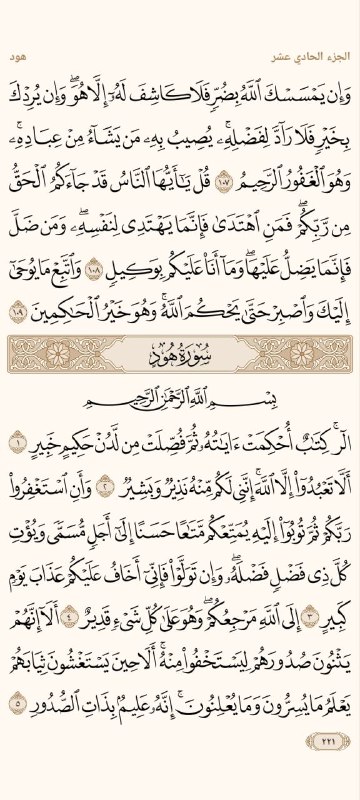 الجزء الحادي عشر
هود
وَإِن يَمْسَسْكَ ٱللَّهُ بِضُرٍّ فَلَا كَاشِفَ لَهُۥٓ إِلَّا هُوَۖ وَإِن يُرِدْكَ
بِخَيْرٍ فَلَا رَآدَّ لِفَضْلِهِۦۚ يُصِيبُ بِهِۦ مَن يَشَآءُ مِنْ عِبَادِهِۦۚ
وَهُوَ ٱلْغَفُورُ ٱلرَّحِيمُ ١٠٧ قُلْ يَٰٓأَيُّهَا ٱلنَّاسُ قَدْ جَآءَكُمُ ٱلْحَقُّ
مِن رَّبِّكُمْۖ فَمَنِ ٱهْتَدَىٰ فَإِنَّمَا يَهْتَدِى لِنَفْسِهِۦۖ وَمَن ضَلَّ
فَإِنَّمَا يَضِلُّ عَلَيْهَاۖ وَمَآ أَنَا۠ عَلَيْكُم بِوَكِيلٍ ١٠٨ وَٱتَّبِعْ مَا يُوحَىٰٓ
إِلَيْكَ وَٱصْبِرْ حَتَّىٰ يَحْكُمَ ٱللَّهُۚ وَهُوَ خَيْرُ ٱلْحَٰكِمِينَ ١٠٩
سُورَةُ هُودٍ
بِسْمِ ٱللَّهِ ٱلرَّحْمَٰنِ ٱلرَّحِيمِ
الٓرۚ كِتَٰبٌ أُحْكِمَتْ ءَايَٰتُهُۥ ثُمَّ فُصِّلَتْ مِن لَّدُنْ حَكِيمٍ خَبِيرٍ ١
أَلَّا تَعْبُدُوٓا۟ إِلَّا ٱللَّهَۚ إِنَّنِى لَكُم مِّنْهُ نَذِيرٌ وَبَشِيرٌ ٢ وَأَنِ ٱسْتَغْفِرُوا۟
رَبَّكُمْ ثُمَّ تُوبُوٓا۟ إِلَيْهِ يُمَتِّعْكُم مَّتَٰعًا حَسَنًا إِلَىٰٓ أَجَلٍ مُّسَمًّى وَيُؤْتِ
كُلَّ ذِى فَضْلٍ فَضْلَهُۥۖ وَإِن تَوَلَّوْا۟ فَإِنِّىٓ أَخَافُ عَلَيْكُمْ عَذَابَ يَوْمٍ
كَبِيرٍ ٣ إِلَى ٱللَّهِ مَرْجِعُكُمْۖ وَهُوَ عَلَىٰ كُلِّ شَىْءٍ قَدِيرٌ ٤ أَلَآ إِنَّهُمْ
يَثْنُونَ صُدُورَهُمْ لِيَسْتَخْفُوا۟ مِنْهُۚ أَلَا حِينَ يَسْتَغْشُونَ ثِيَابَهُمْ
يَعْلَمُ مَا يُسِرُّونَ وَمَا يُعْلِنُونَۚ إِنَّهُۥ عَلِيمٌۢ بِذَاتِ ٱلصُّدُورِ ٥
٢٢١